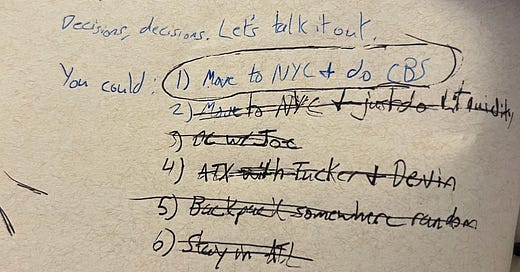 Decisions, decisions. Let's talk it out.
You could: 1) Move to NYC + do CBS
2) Move to NYC + just do Litquidity
3) DC w/ Joe
4) ATX with Tucker + Devin
5) Backpack somewhere random
6) Stay in ATL